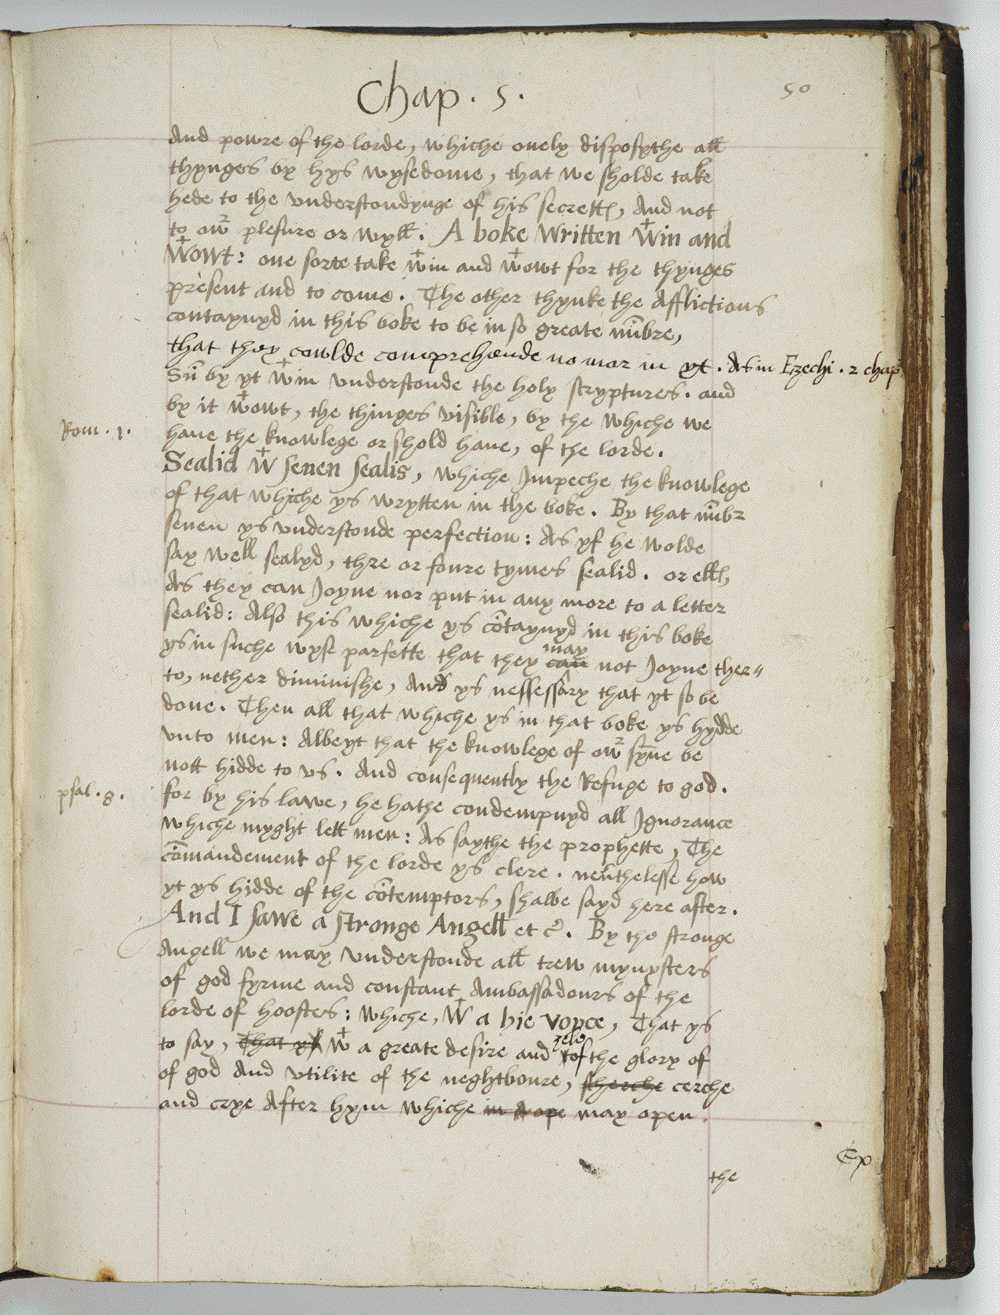 Chap . 5 .
50
And powre of the lorde, whiche onely disposythe all
thynges by hys wysedome, that we sholde take
hede to the understondynge of his secrettꝭ, And not
to owͬ plesure or wyll. A boke written wͭin and
wͭowt: one sorte take wͭin and wͭowt for the thynges
present and to come. The other thynke the Afflictions
contaynyd in this boke to be in so greate nūbre,
that they cowlde comprehende no mor in yt. As in Ezechi . 2 chap
Sū by yt wͭin understonde the holy scryptures. and
by it wͭowt, the thinges visible, by the whiche we
Rom . 1 .
haue the knowlege or shold haue, of the lorde.
Sealid wͭ seuen sealis, whiche Impeche the knowlege
of that whiche ys wrytten in the boke. By that nūbr
seuen ys understonde perfection: As yf he wolde
say well sealyd, thre or foure tymes sealid. or ellꝭ,
As they can Joyne nor put in any more to a letter
sealid: Also this whiche ys cōtaynyd in this boke
ys in suche wyse parfette that they can may not Joyne ther=
to, nether diminishe, And ys nessessary that yt so be
done. Then all that whiche ys in that boke ys hydde
unto men: Albeyt that the knowlege of owͬ syn̄e be
nott hidde to us. And consequently the Refuge to god.
psal . 8 .
for by his lawe, he hathe condempnyd all Ignorance
whiche myght lett men: As saythe the prophette, The
cōmandement of the lorde ys clere. neūthelesse how
yt ys hidde of the cōtemptors, shalbe sayd here after.
And I sawe a stronge Angell et c̃. By the stronge
Angell we may understonde all trew mynysters
of god fyrme and constant Ambassadours of the
lorde of hoosters: whiche, wͭ a hie voyce, That ys
to say, That ys wͭ a greate desire and zele of the glory of
of god And utilite of the neghtboure, sherche cerche
and crye After hym whiche in A ope may open.
the
Ex